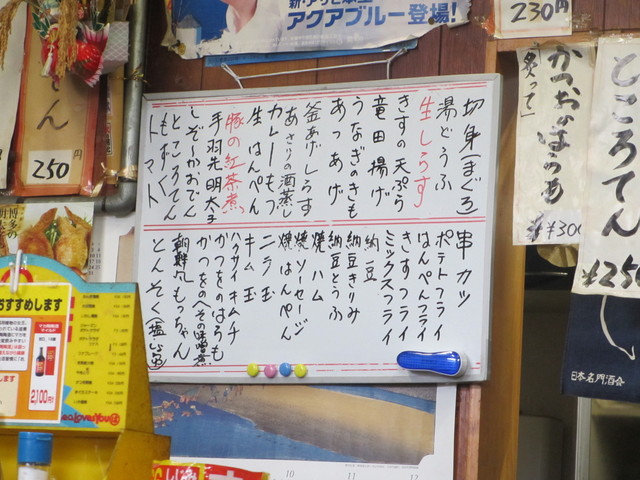 新・アサヒ本生
アクアブルー登場!
230円
切身(まぐろ)
湯どうふ
生しらす
きすの天ぷら
竜田揚げ
うなぎのきも
あつあげ
釜あげしらす
あさりの酒蒸し
カレーもつ
生はんぺん
豚の紅茶煮
手羽先明太子
しぞ〜かおでん
ところてん
もずく
トマト
串カツ
ポテトフライ
はんぺんフライ
きすフライ
ミックスフライ
納豆
納豆きりみ
納豆とうふ
焼ハム
焼ソーセージ
焼はんぺん
ニラ玉
キム玉
ハクサイキムチ
かつをのはらも
かつをのへその味噌煮
朝鮮風もつちゃん
とんそく塩しょうゆ
かつおのはらも
炙って
¥300
ところてん
¥250
日本名門酒会
250円
博多の
おすすめします
2,100円
10
11
12